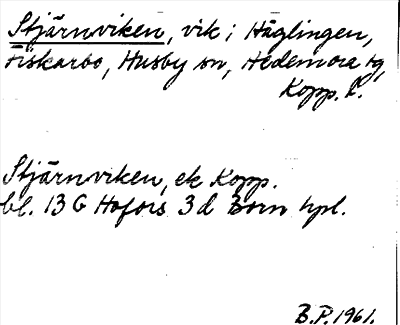 Stjärnviken, vik i Häglingen,
Fiskarbo, Husby sn, Hedemora tg,
Kopp. l.
Stjärnviken, ek Kopp.
bl. 13 G Hofors 3d Born hpl.
B.P. 1961.